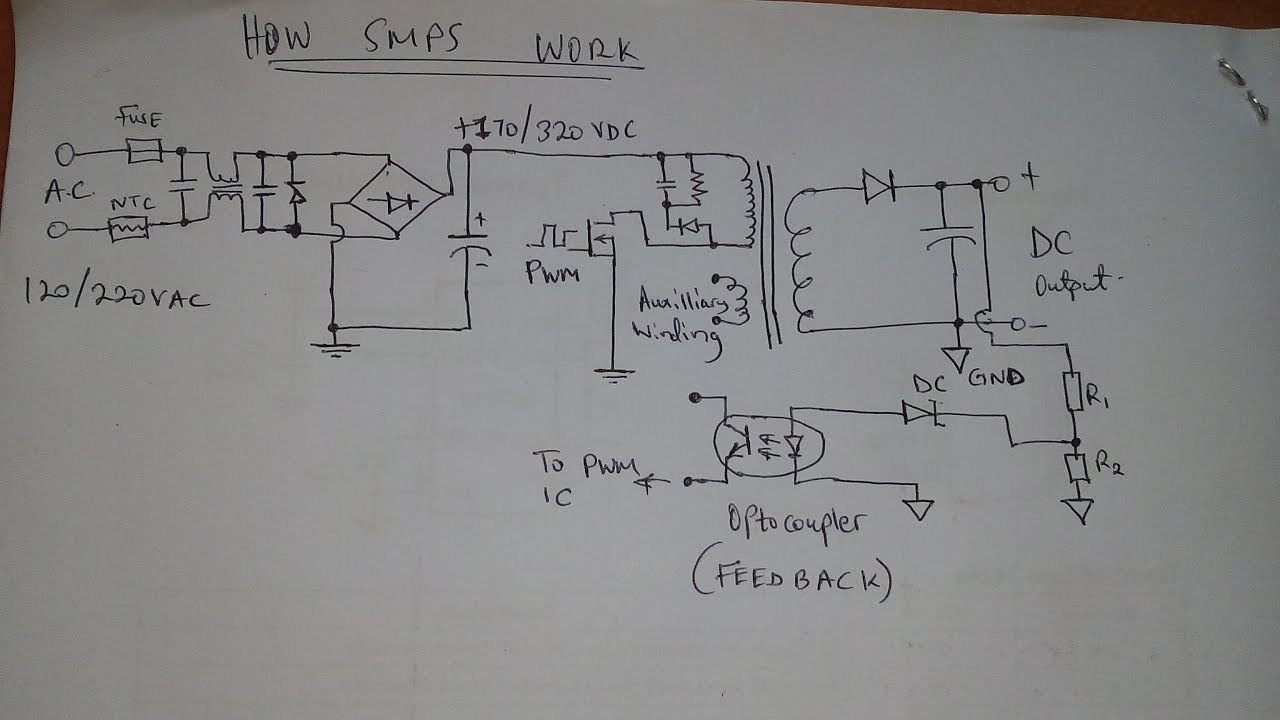 HOW SMPS WORK
FUSE
+170/320VDC
A.C.
NTC
+
+
-
PWM
120/220VAC
Auxilliary
Winding
DC
Output.
-
GND
DC
R1
R2
To PWM
IC
Optocoupler
(FEEDBACK)